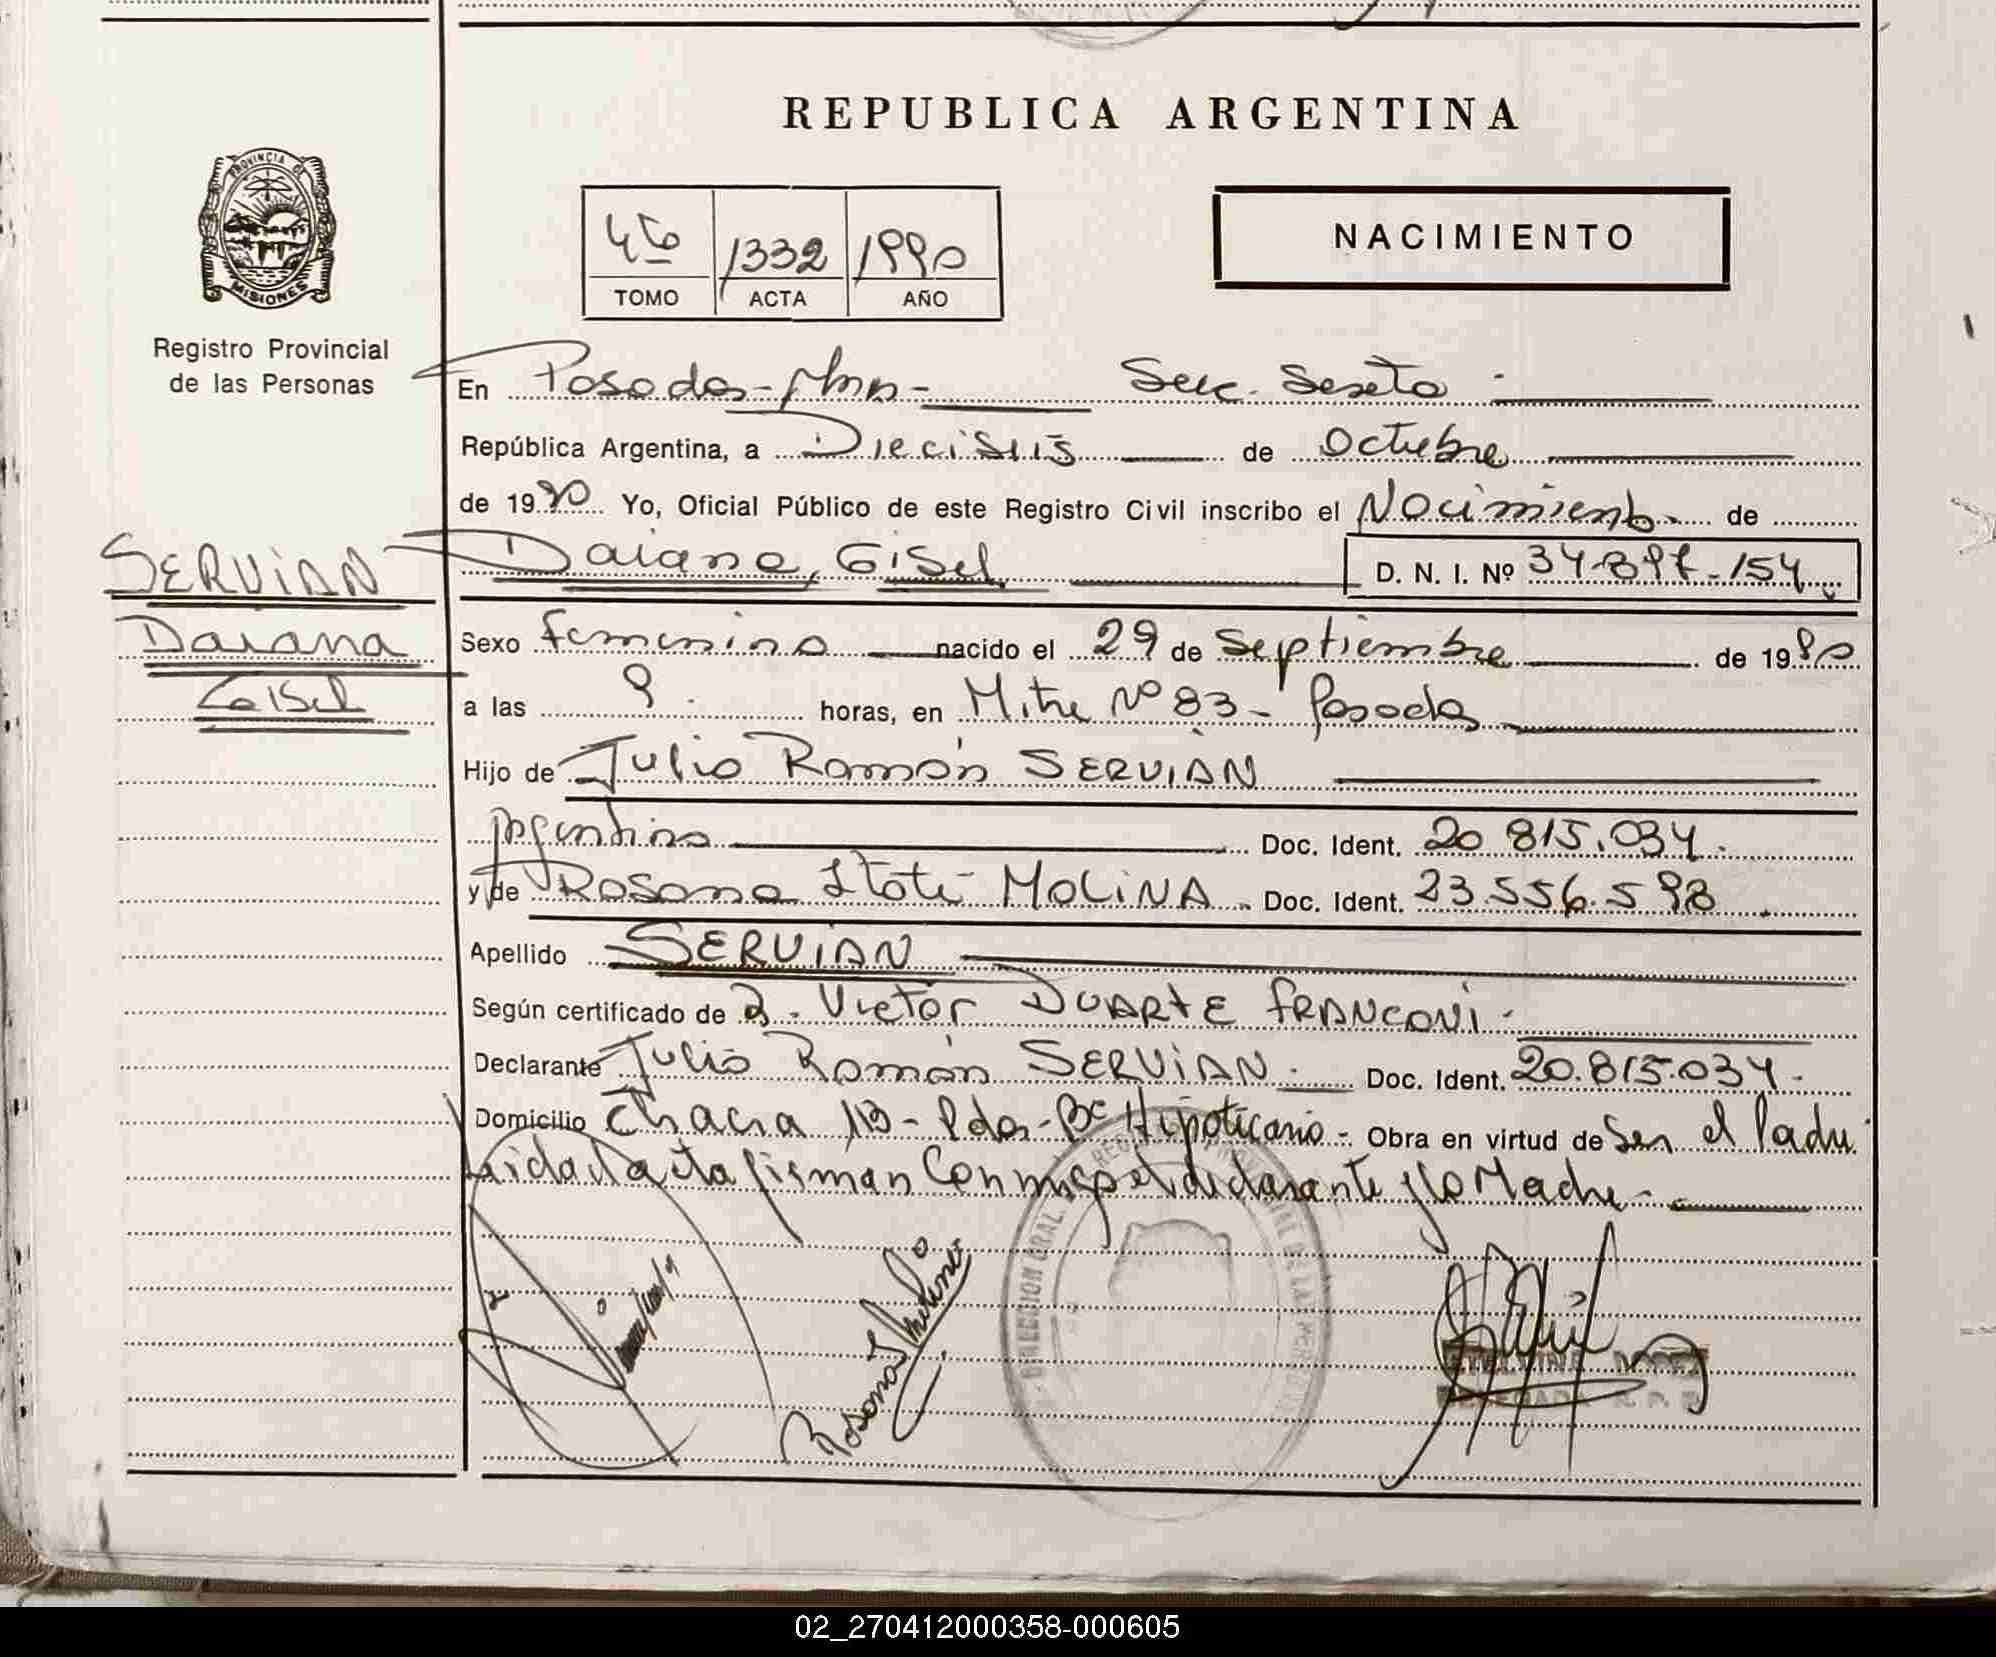 REPUBLICA ARGENTINA
PROVINCIA DE
MISIONES
Registro Provincial
de las Personas
4to 1332 1990
TOMO ACTA AÑO
NACIMIENTO
En Posadas - Mnes - Secc. Sexta
República Argentina, a Dieciseis de Octubre
de 1990 Yo, Oficial Público de este Registro Civil inscribo el Nacimiento de
SERVIAN
Daiana
Gisel
Daiana, Gisel D. N. I. Nº 34.897.154
Sexo femenino nacido el 29 de Septiembre de 1990
a las 9 horas, en Mitre Nº 83 - Posadas
Hijo de Julio Ramón SERVIAN
Argentino Doc. Ident. 20 815.034.
y de Rosana Itatí MOLINA Doc. Ident. 23.556.598
Apellido SERVIAN
Según certificado de Victor DUARTE FRANCONI
Declarante Julio Ramón SERVIAN Doc. Ident. 20.815.034.
Domicilio Chacra 113 - Pdas - Bº Hipotecario - Obra en virtud de Ser el Padre
Leida el acta firman Conmigo el declarante y la Madre -
Rosana Molina
02_270412000358-000605